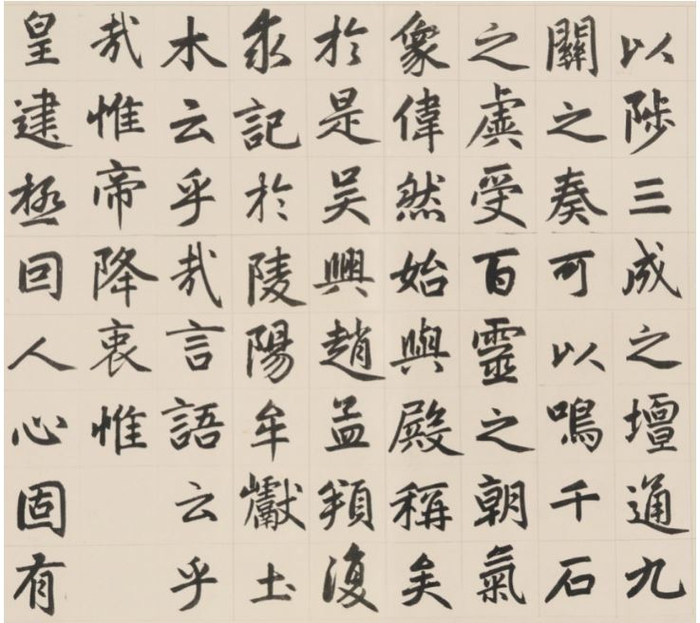 以陟三成之壇通九
關之奏可以鳴千石
之虡受百靈之朝氣
象偉然始與殿稱矣
於是吳興趙孟頫復
求記於陵陽牟巘土
木云乎哉言語云乎
哉惟帝降衷惟
皇建極回人心固有